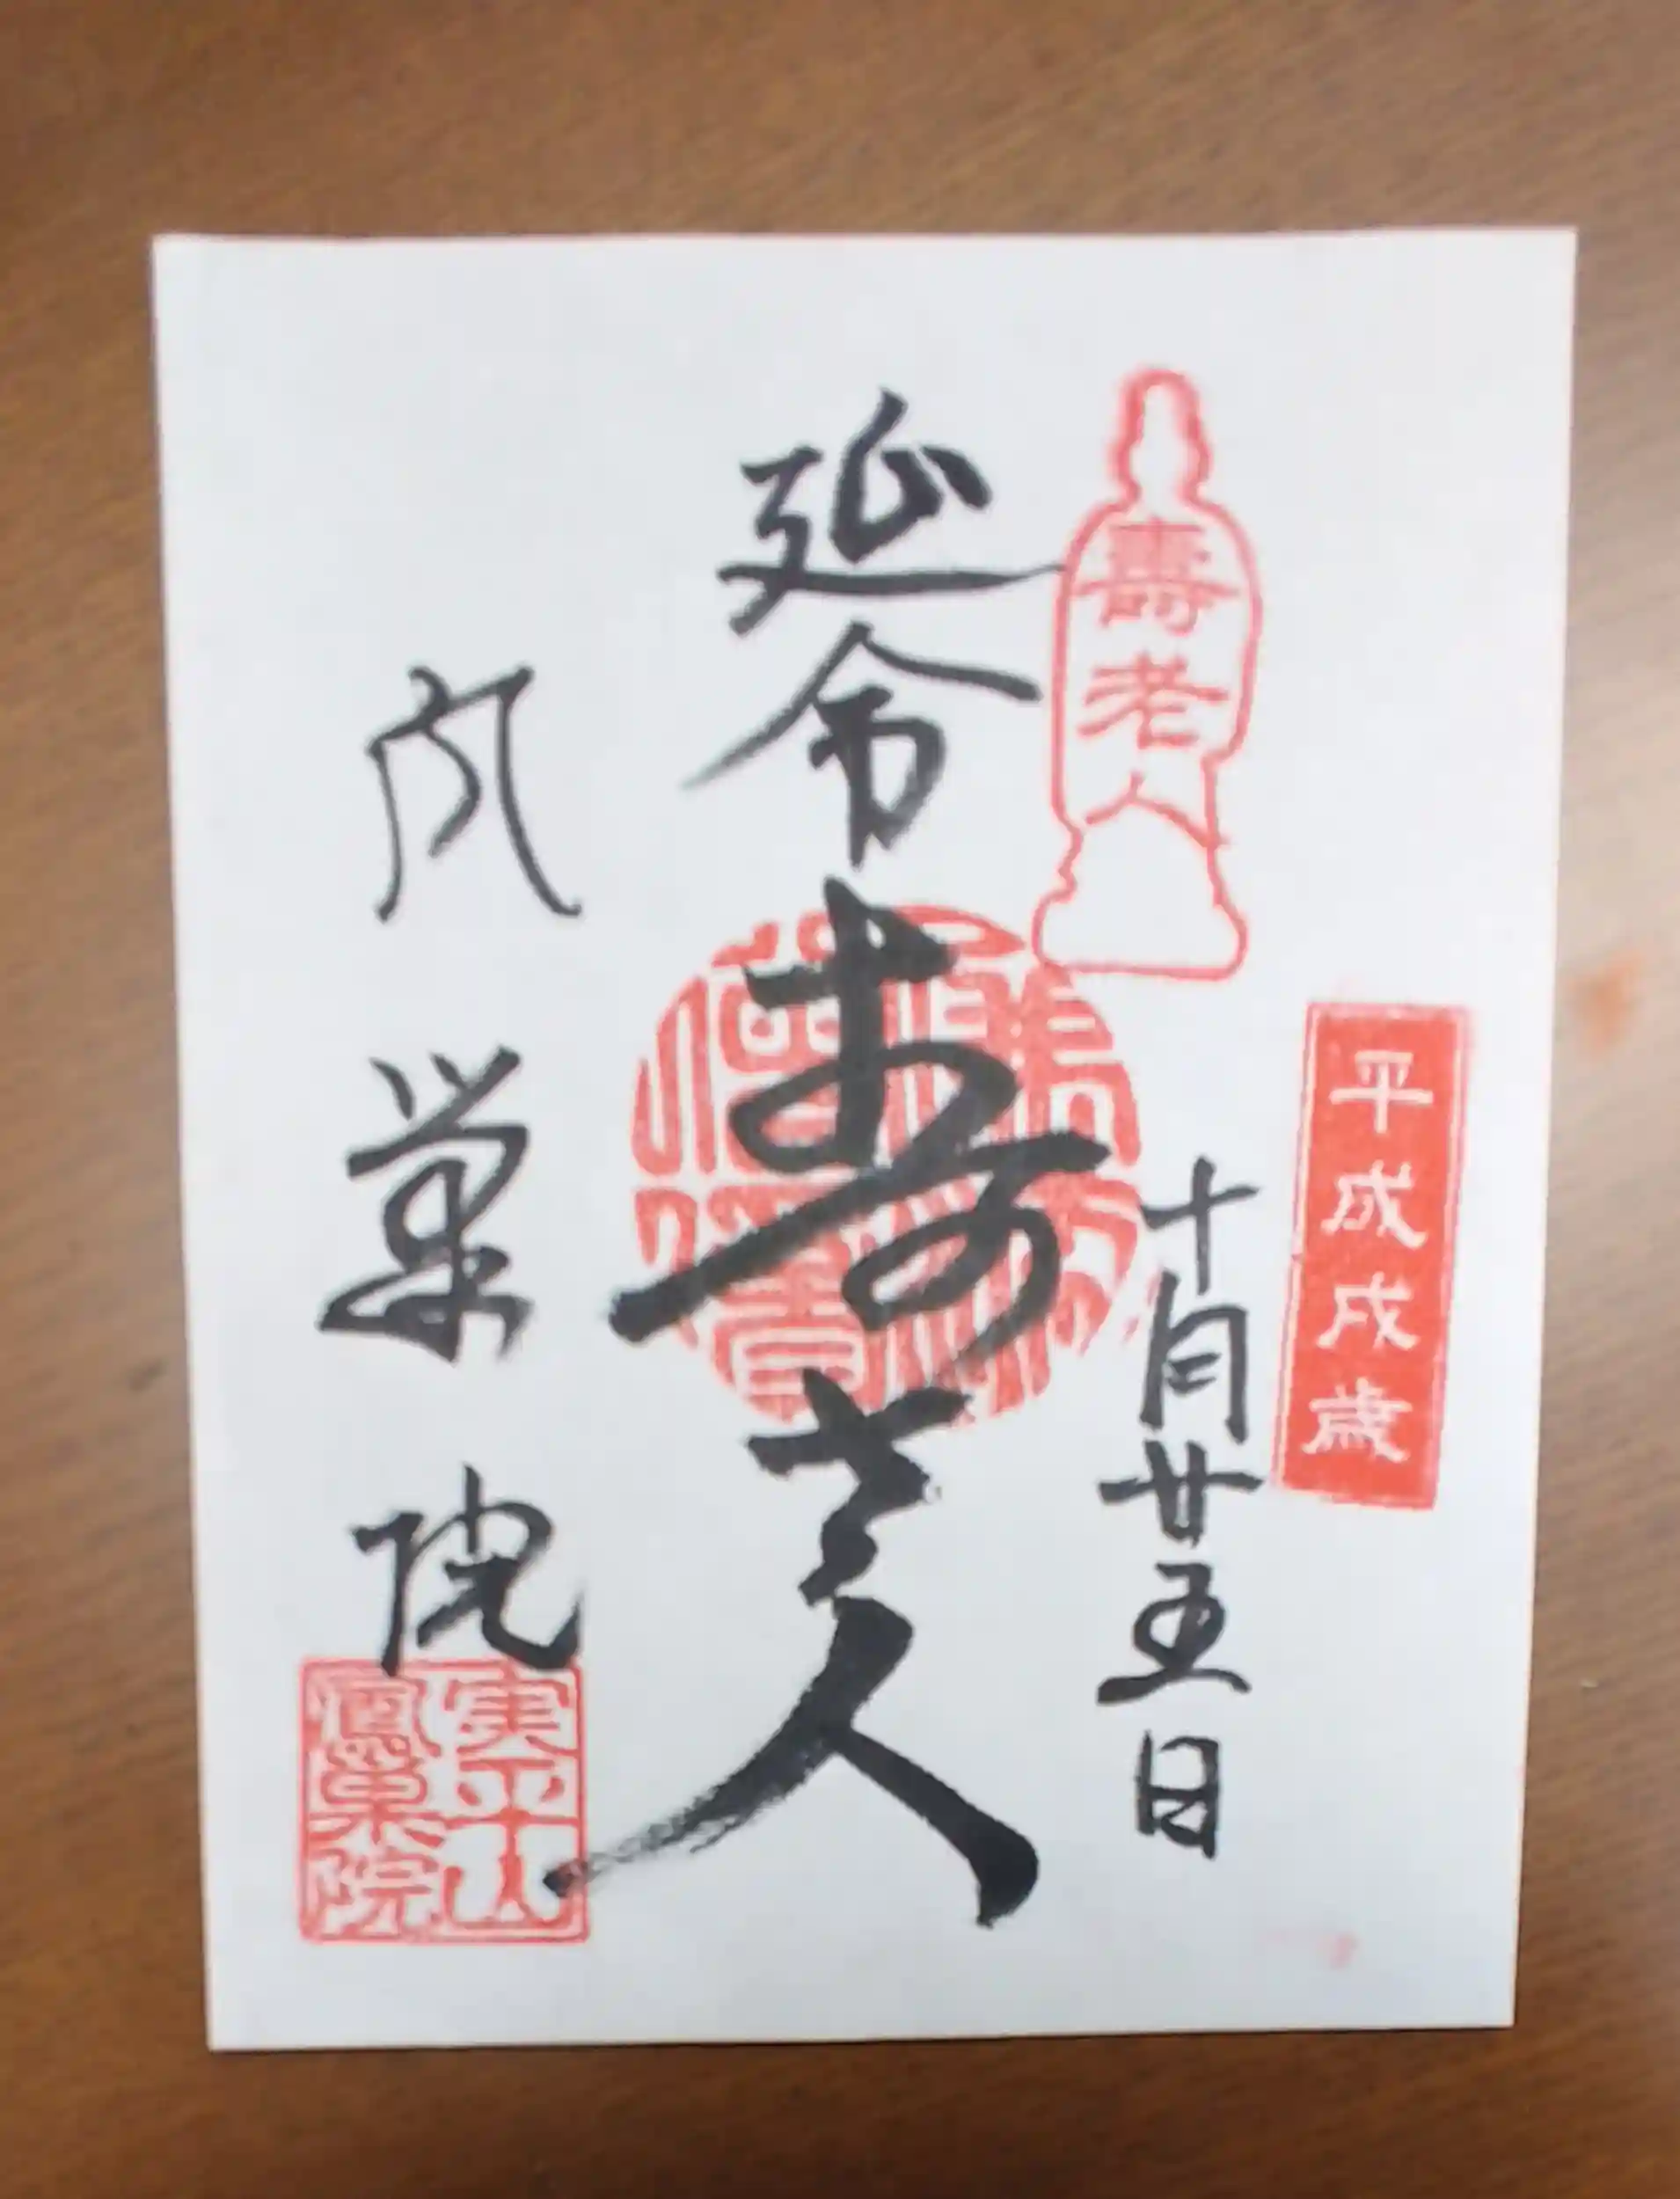 平成戌歳
十月廿五日
壽老人
延命寿老人
鳳巣院
実平山
鳳巣院